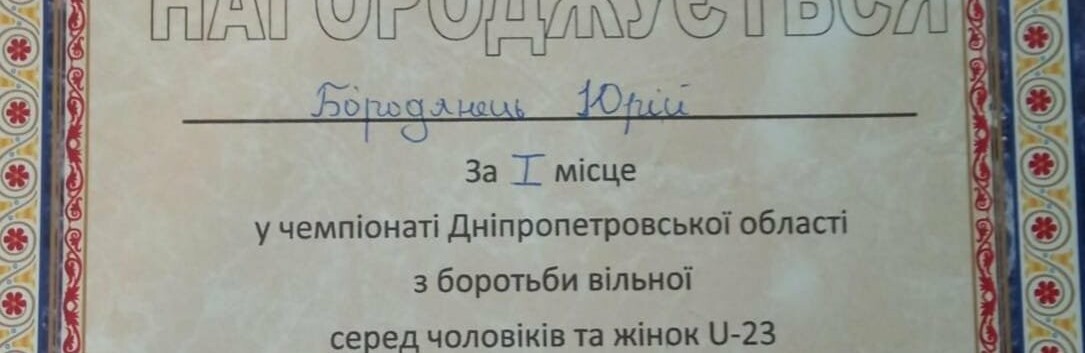 НАГОРОДЖУЄТЬСЯ
Бородянець Юрій
За I місце
у чемпіонаті Дніпропетровської області
з боротьби вільної
серед чоловіків та жінок U-23